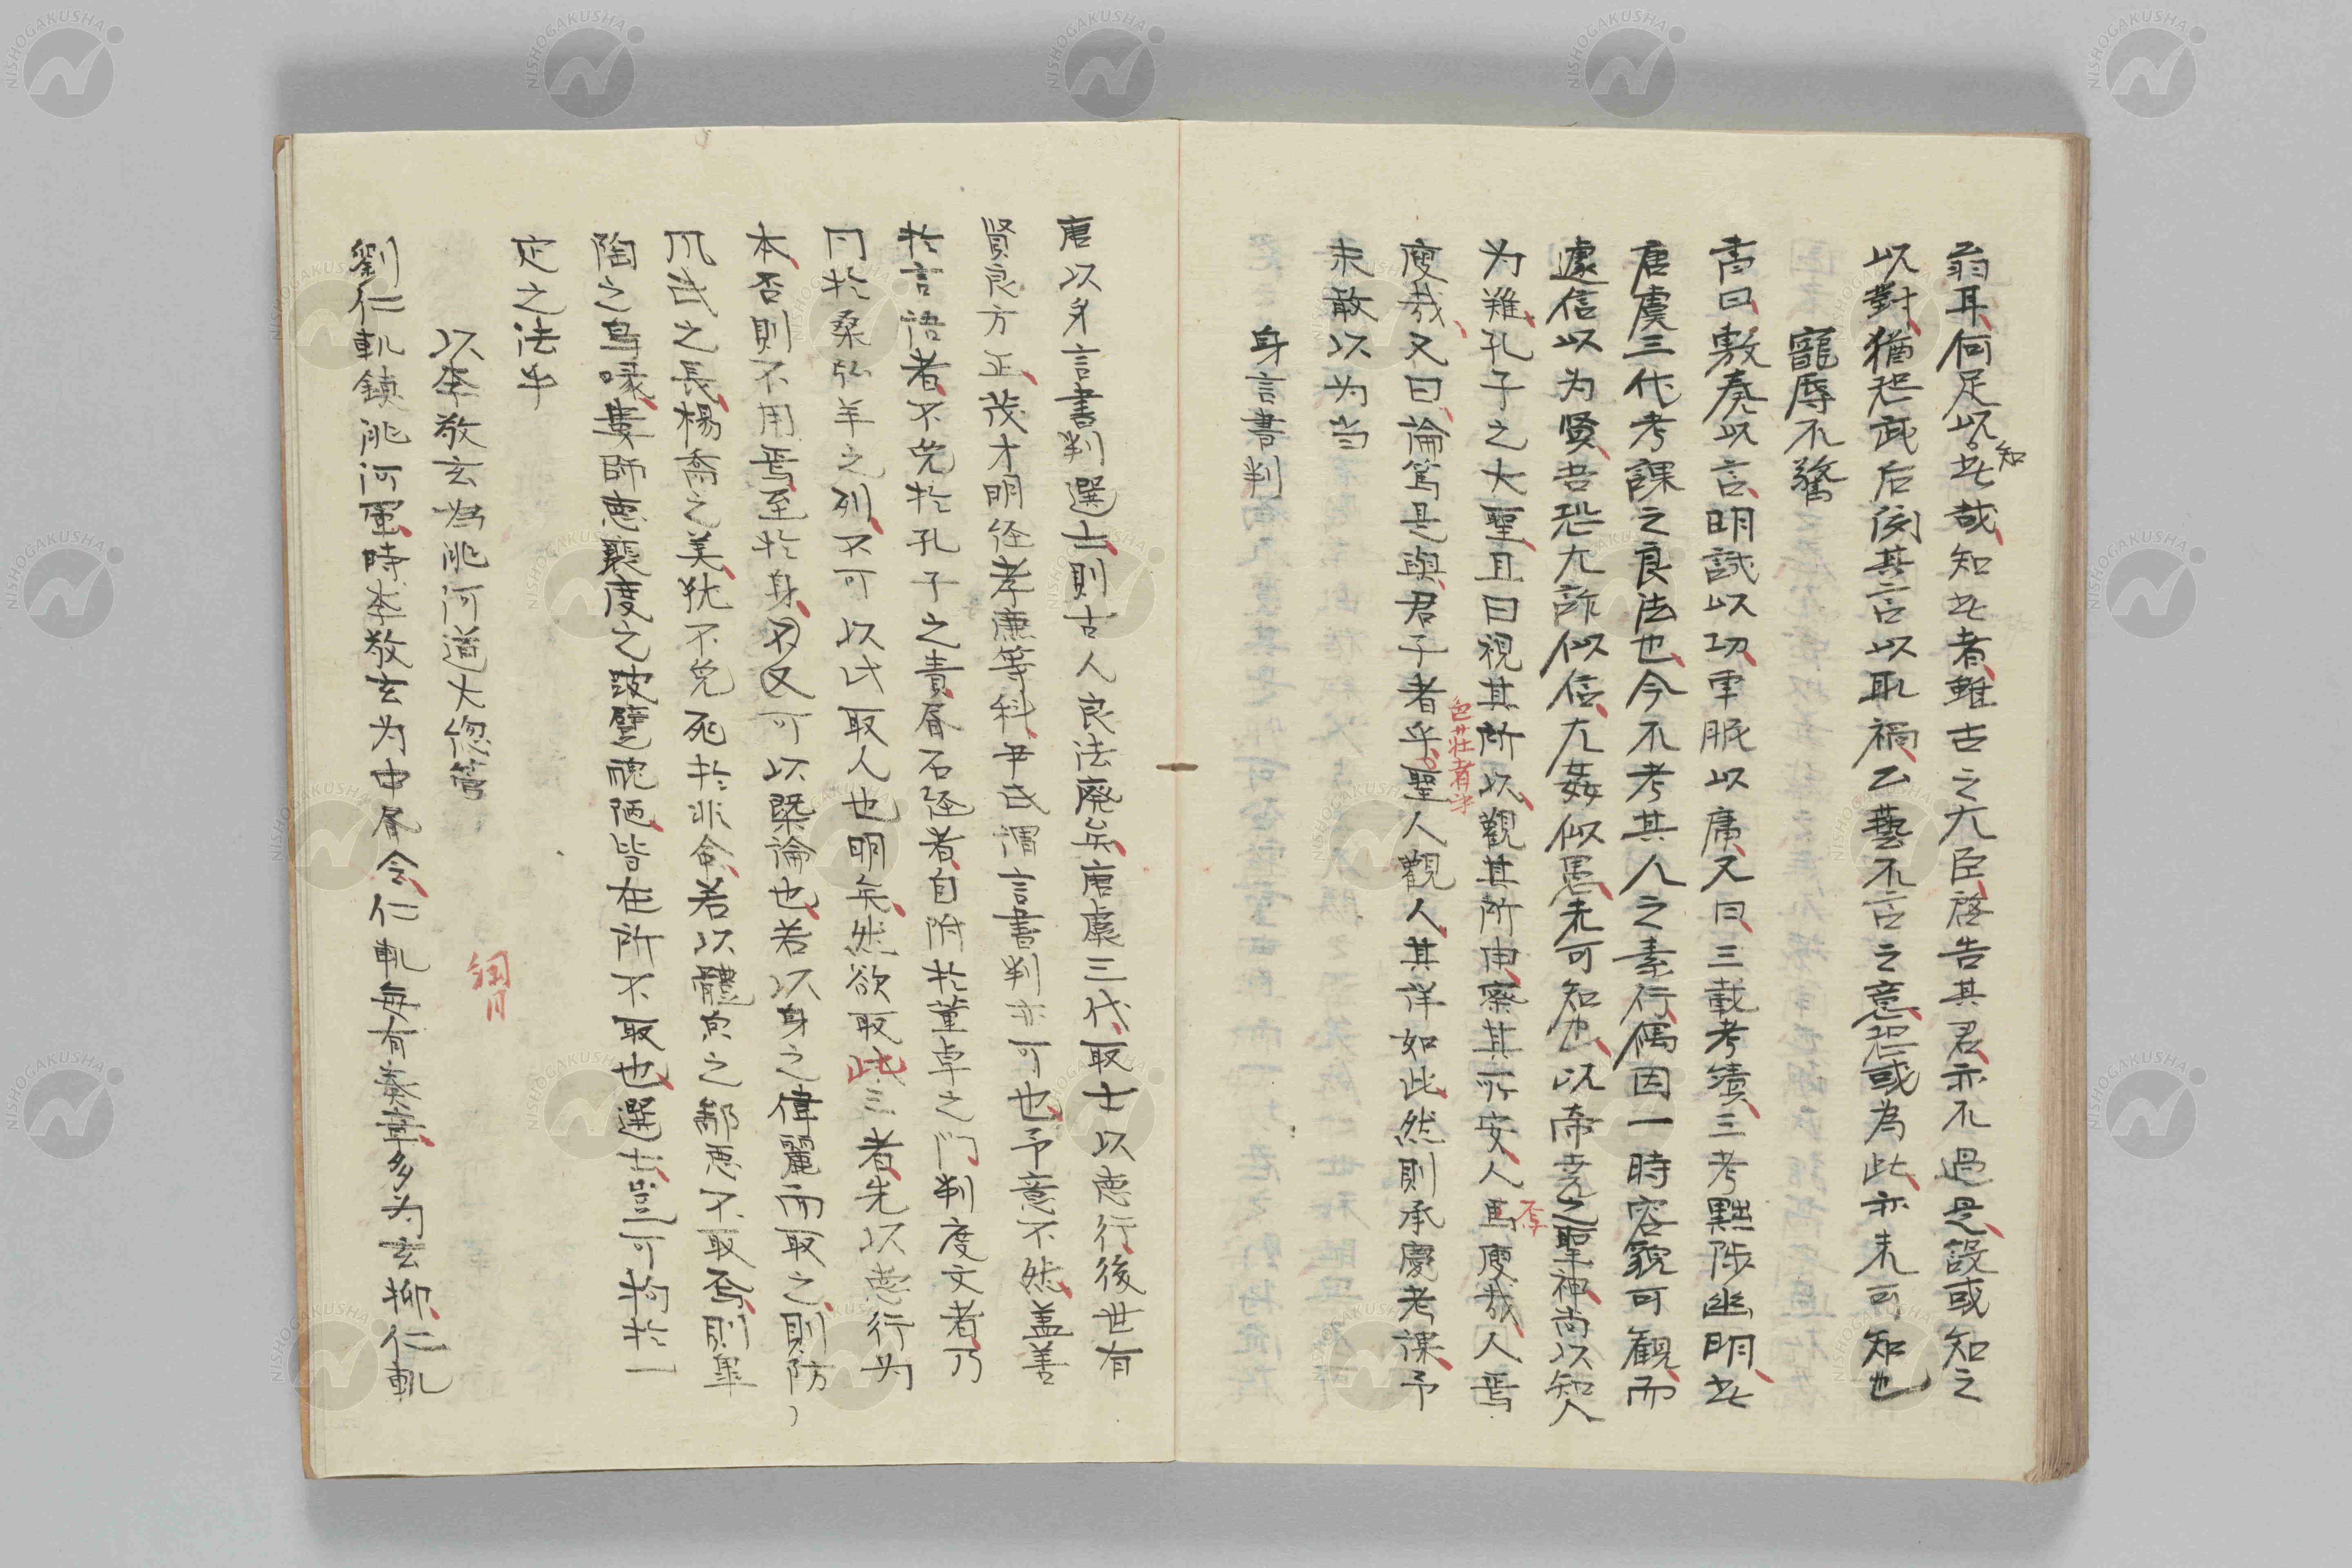 翁耳何足以知此哉知此者雖古之大臣啓告其君亦不過是設或知之
以對猶恐武后因其言以取禍公藝不言之意恐或為此亦未可知也
寵辱不驚
書曰敷奏以言明試以功車服以庸又曰三載考績三考黜陟幽明此
唐虞三代考課之良法也今不考其人之素行偶因一時容貌可観而
遽信以为賢吾恐大詐似信大姦似愚未可知也以帝堯之聖神尚以知人
为難孔子之大聖且曰視其所以觀其所由察其所安人焉廋哉人焉
廋哉又曰論篤是與君子者乎色荘者乎聖人觀人其詳如此然則承慶考課予
未敢以为当
身言書判
唐以身言書判選士則古人良法廃矣唐虞三代取士以悳行後世有
賢良方正茂才明経孝廉等科尹氏謂言書判亦可也予意不然盖善
於言語者不免於孔子之責居石経者自附於董卓之门判度文者乃
同於桑弘羊之列不可以此取人也明矣然欲取此三者先以悳行为
本否則不用焉至於身又可以槩論也若以身之偉麗而取之則防
風氏之長楊喬之美犹不免死於非命若以體皃之鄙悪不取焉則皐
陶之鳥喙婁師悳裴度之跛躄醜陋皆在所不取也選士豈可拘於一
定之法乎
以李敬玄為洮河道大惣管
劉仁軌鎮洮河軍時李敬玄为中居令仁軌毎有奏章多为玄抑仁軌